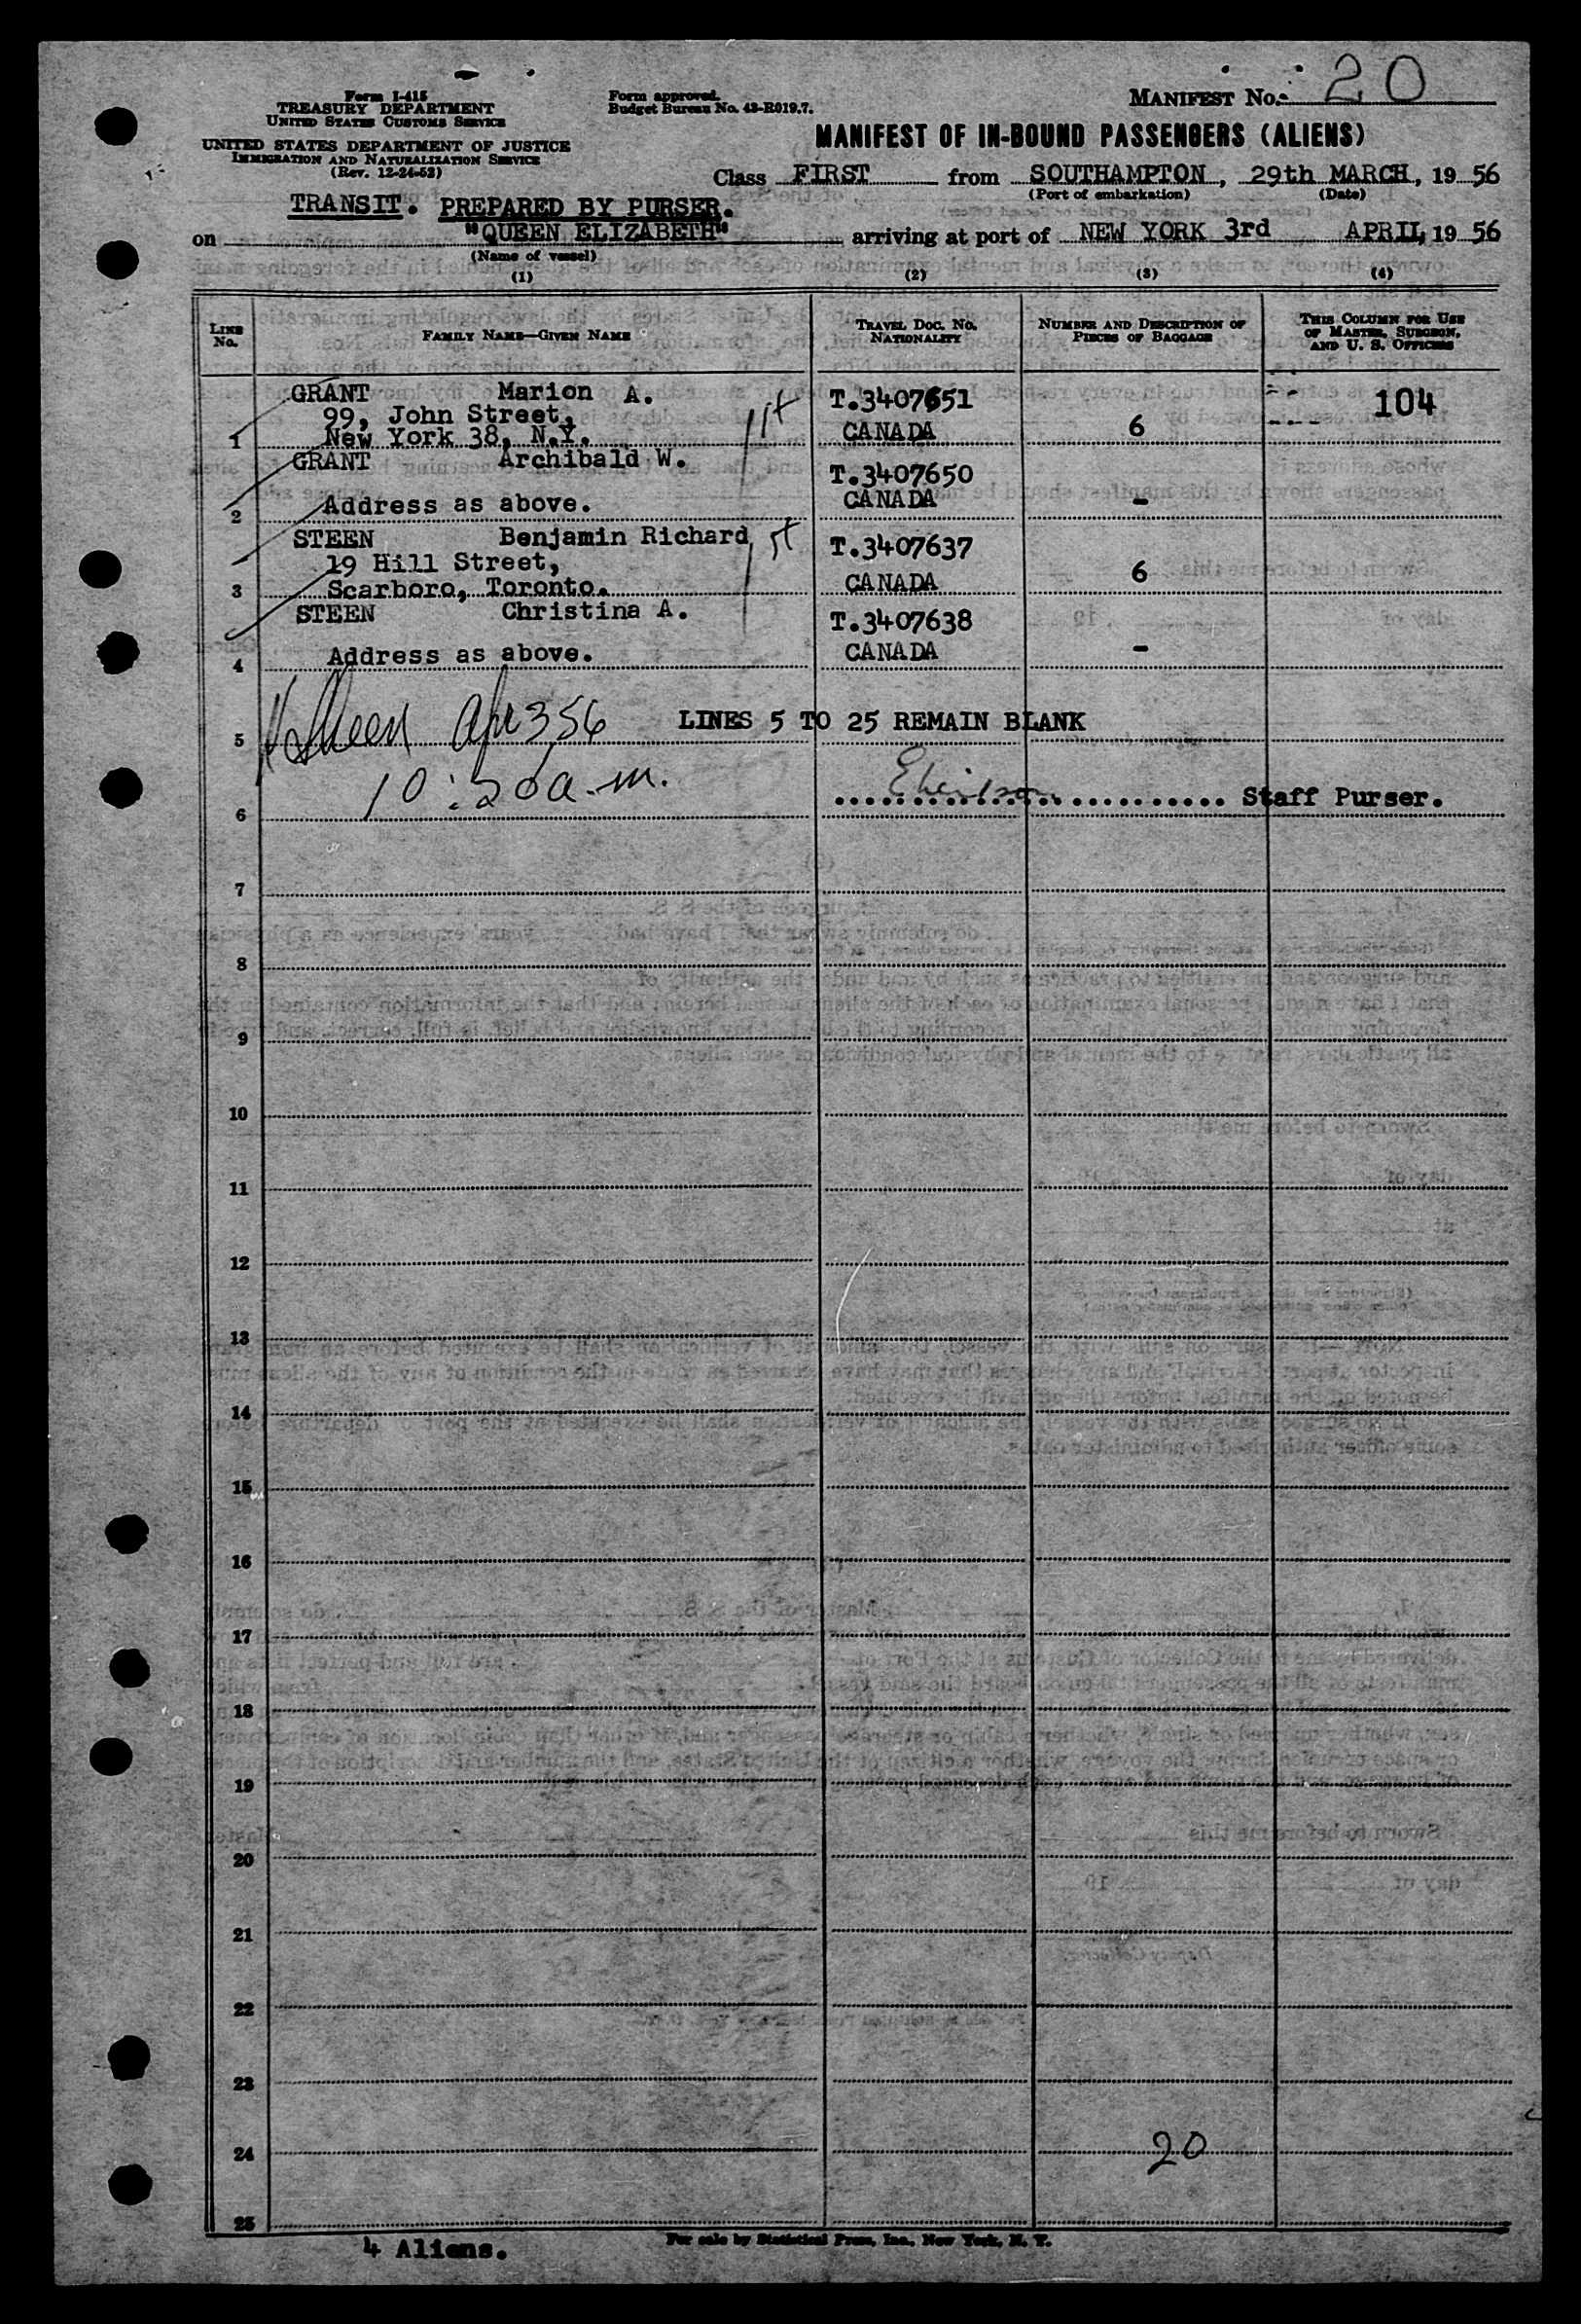 Form I-415
TREASURY DEPARTMENT
UNITED STATES CUSTOMS SERVICE
UNITED STATES DEPARTMENT OF JUSTICE
IMMIGRATION AND NATURALIZATION SERVICE
(Rev. 12-24-52)
Form approved.
Budget Bureau No. 43-R019.7.
MANIFEST NO. 20
MANIFEST OF IN-BOUND PASSENGERS (ALIENS)
Class FIRST from SOUTHAMPTON, 29th MARCH, 1956
(Port of embarkation) (Date)
TRANSIT. PREPARED BY PURSER.
on "QUEEN ELIZABETH" arriving at port of NEW YORK 3rd APRIL, 1956
(Name of vessel)
(1) (2) (3) (4)
LINE No. FAMILY NAME—GIVEN NAME TRAVEL DOC. NO. NATIONALITY NUMBER AND DESCRIPTION OF PIECES OF BAGGAGE THIS COLUMN FOR USE OF MASTER, SURGEON, AND U. S. OFFICERS
GRANT Marion A. T.3407651 104
99, John Street,
1 New York 38, N.Y. CANADA 6
GRANT Archibald W. T.3407650
2 Address as above. CANADA -
STEEN Benjamin Richard T.3407637
19 Hill Street,
3 Scarboro, Toronto. CANADA 6
STEEN Christina A. T.3407638
4 Address as above. CANADA -
5 Apr 3 56 LINES 5 TO 25 REMAIN BLANK
10:20 a.m.
6 Staff Purser.
7
8
9
10
11
12
13
14
15
16
17
18
19
20
21
22
23
24 20
25
4 Aliens.
For sale by Statistical Press, Inc., New York, N. Y.